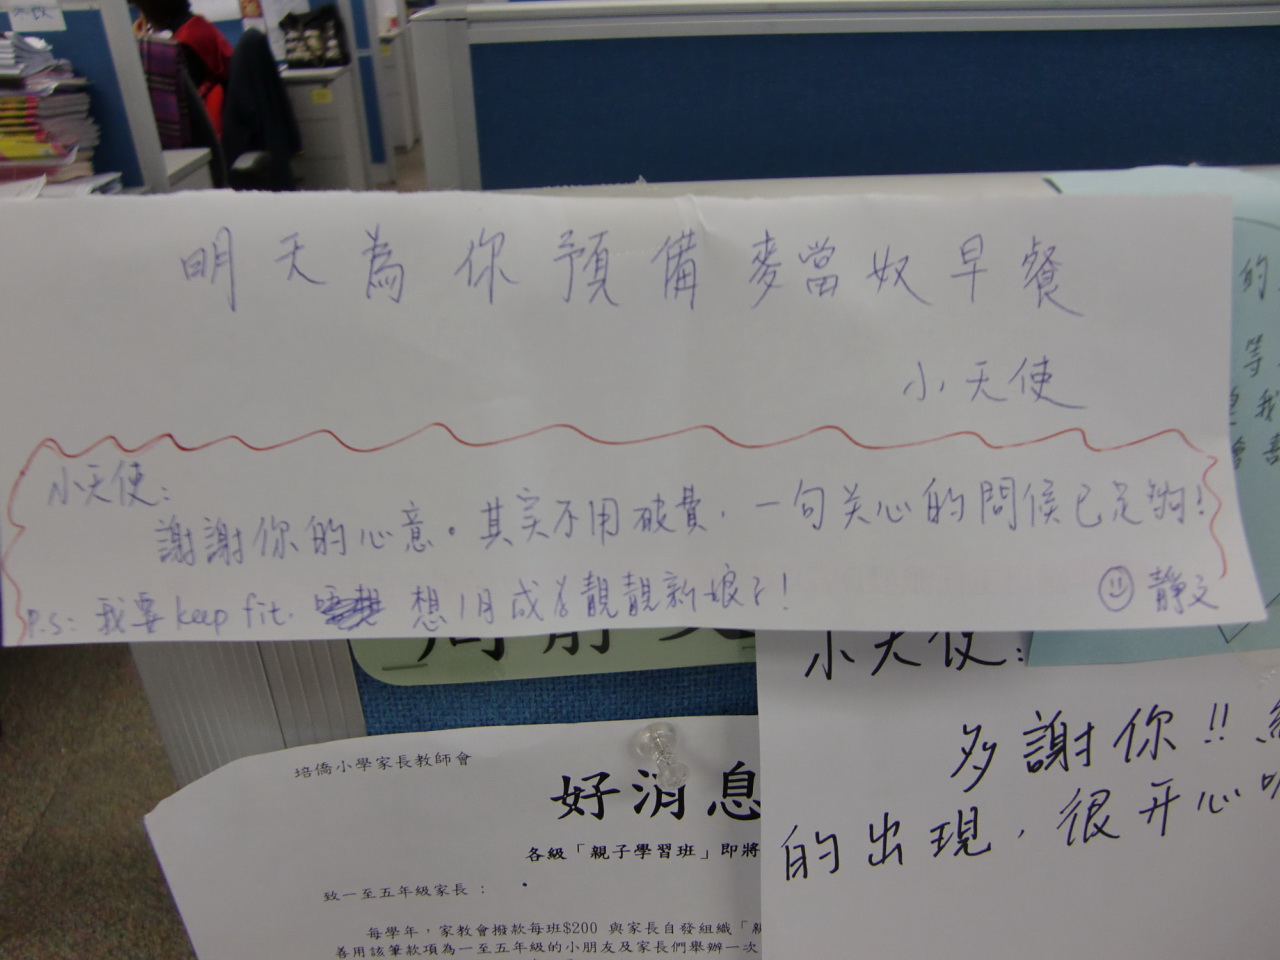 明天為你預備麥當奴早餐
小天使
小天使：
謝謝你的心意。其实不用破費，一句关心的問候已足夠！
P.S: 我要 keep fit. 想1月成為靚靚新娘子！
靜文
小天使：
多謝你!!
的出現，很开心
培僑小學家長教師會
好消息
各級「親子學習班」即將
致一至五年級家長：
每學年，家教會撥款每班$200 與家長自發組織「親
善用該筆款項為一至五年級的小朋友及家長們舉辦一次
的
等
我